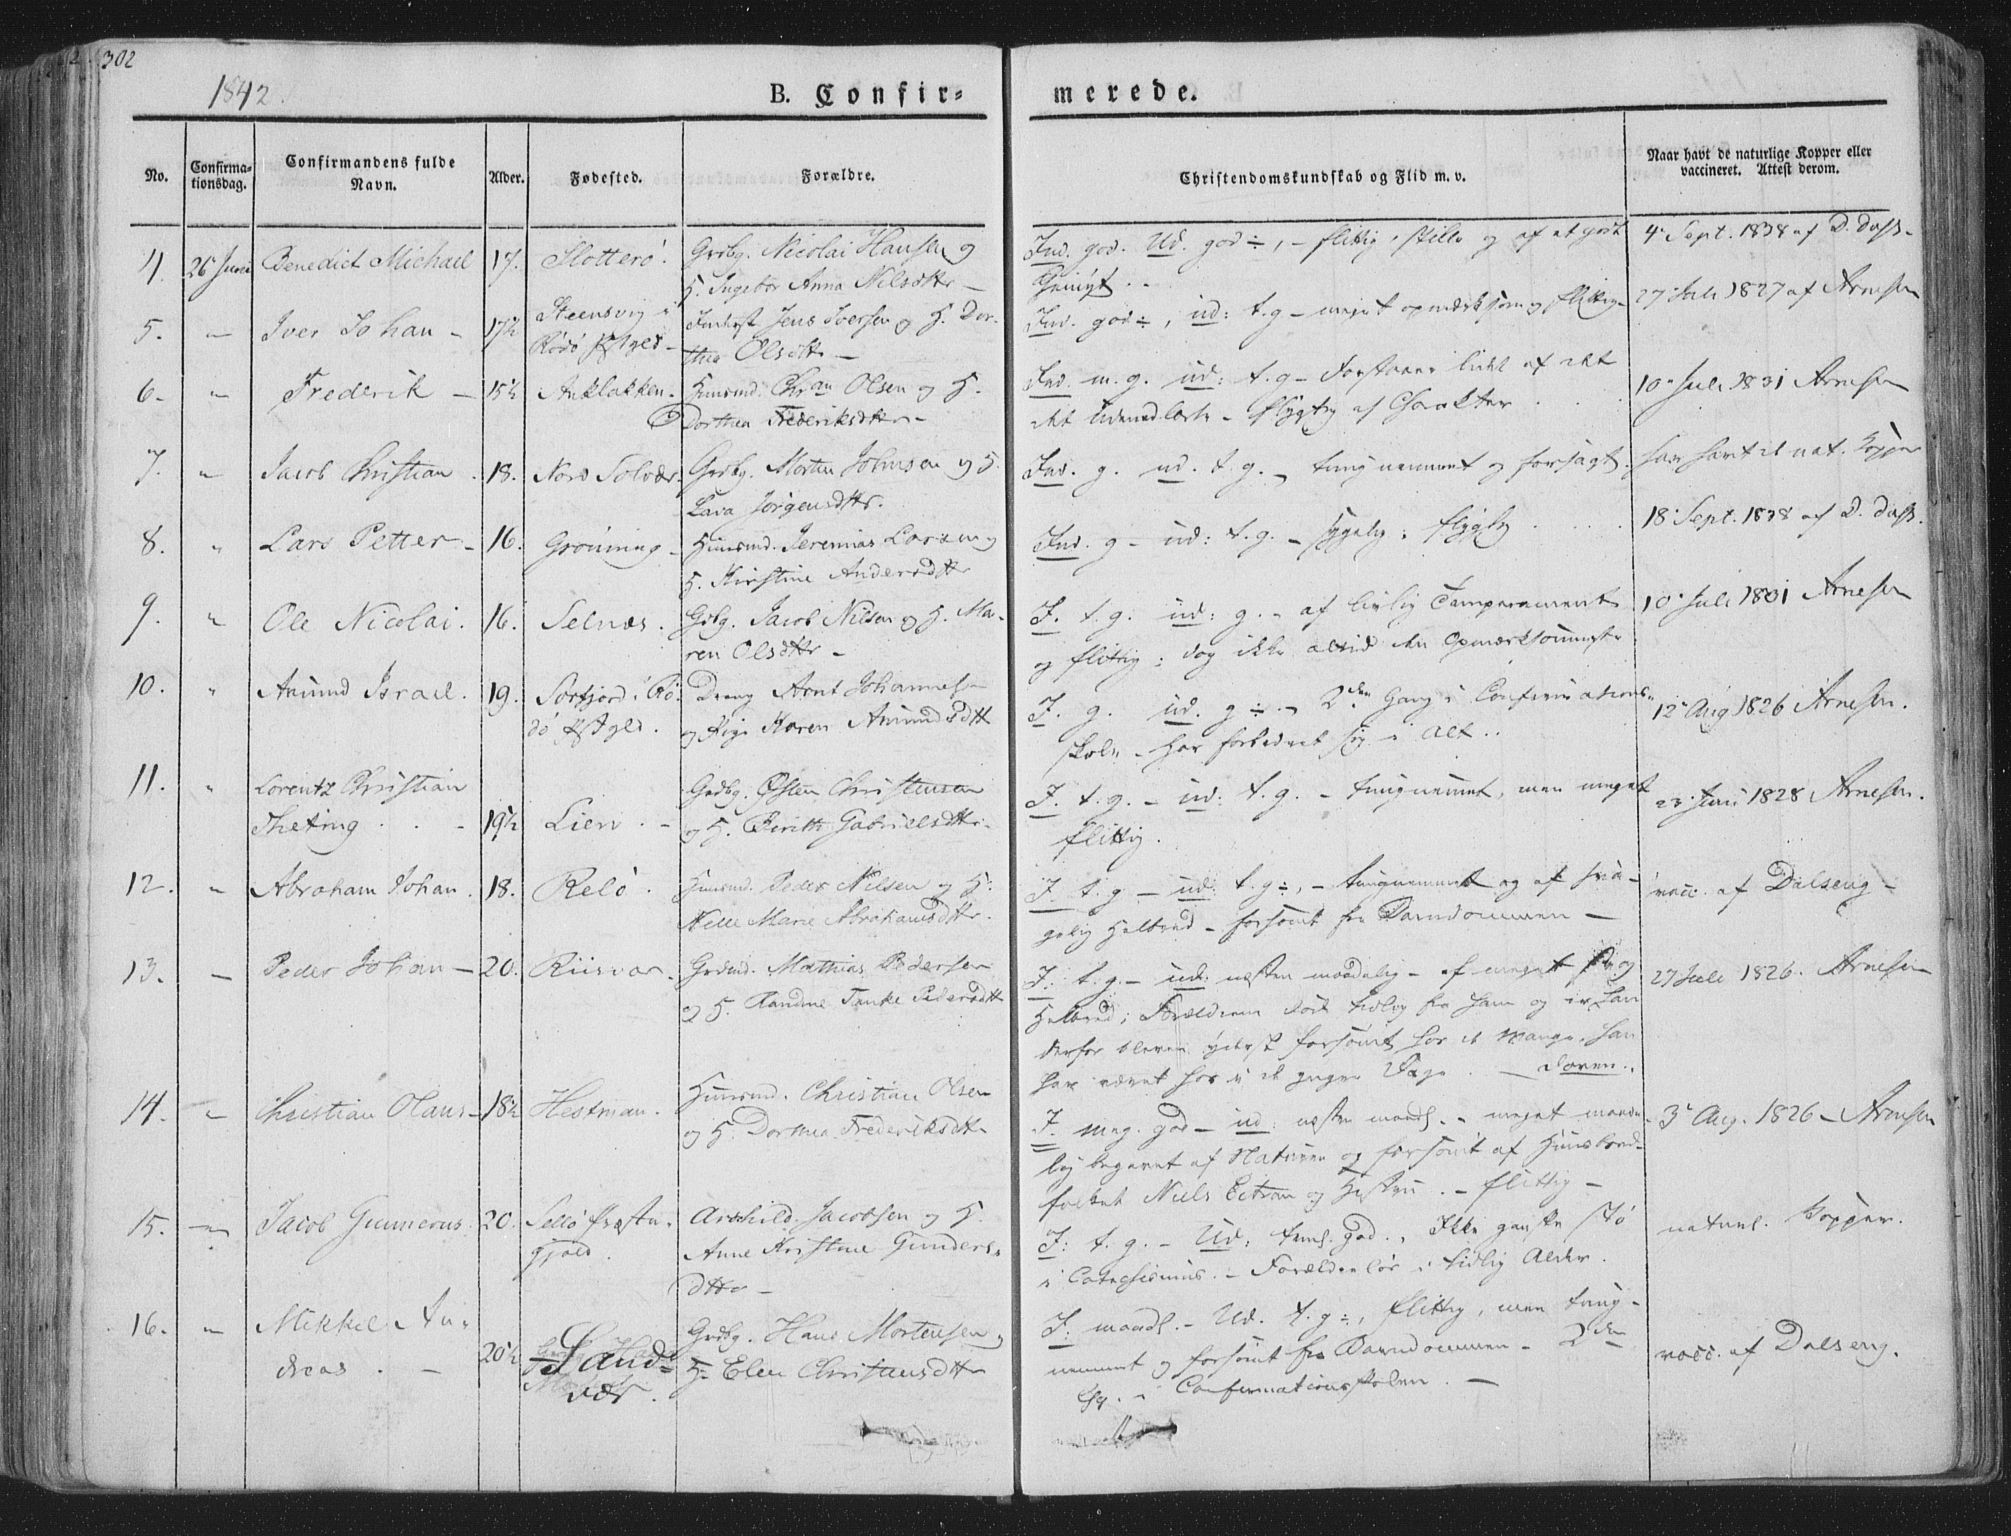 302
1842
B. Confir=
merede.
No.
Confirma=
tionsdag.
Confirmandens fulde
Navn.
Alder.
Fødested.
Forældre.
Christendomskundskab og Flid m. v.
Naar havt de naturlige Kopper eller
vaccineret. Attest derom.
4. 26 Juni Benedict Michael 17. Slotterö. Grdbg. Nicolai Hansen og
H. Ingebor Anna Nilsdttr —
Ind. god. Ud. god ÷, – flittig, stille og af et godt
Gemyt. .
4. Sept. 1838 af D. Dass.
5. — Iver Johan – 17½ Steensvig i
Rödö Pstgld –
Inderst Jens Iversen og H. Dor-
thea Olsdttr —
Ind. god ÷, ud: t. g – meget opmærksom og flittig –
27 Juli 1827 af Arnesen
6. " Frederik – 15½ Anklakken. Huusmd. Chran Olsen og H.
Dorthea Frederiksdttr –
Ind. m. g. ud: t. g – Forstaaer lidet af det
det udenadlærte – flygtig af Charakter
10. Juli 1831 Arnesen
7. " Jacob Christian. 18. Nord Solvær. Grdbg. Morten Johnsen og H.
Lava Jörgensdttr.
Ind. g. ud. t. g. – tungnemmet og forsagt.
har havt de nat. Kopper
8. " Lars Petter – 16. Grönning – Huusmd. Jeremias Larsen og
H. Kirstine Andersdttr
Ind. g – ud: t. g. – sygelig, flygtig
18. Sept. 1838 af D. Dass.
9. " Ole Nicolai. 16. Selnæs. Grbg. Jacob Nilsen og H. Ma-
ren Olsdttr –
I. t. g. ud: g. – af livlig Temperament
og flittig; dog ikke altid den opmærksomste
10. Juli 1831 Arnesen
10. " Amund Israel. 19. Sörfjord i Rö-
dö Pstgld.
Dreng Arnt Johannesen
og Pige Karen Amundsdtt
I. g. ud. g ÷. – 2den Gang i Confirmations-
skolen – har forbedret sig i Alt. .
12. Aug 1826 Arnesen.
11. " Lorentz Christian
Theting . . – 19½ Lien. –
Grdbg. Östen Christensen
og H. Birith Gabrielsdttr.
I. t. g. – ud: t. g. – tungnemmet, men meget
flittig.
23. Juni 1828 Arnesen.
12. " Abraham Johan. 18. Relö. Huusmd. Peder Nilsen og H:
Nille Marie Abrahamsdttr.
I t. g – ud: t. g ÷, – tungnemmet og af svag-
gelig Helbred – forsömt fra Barndommen —
vacc. af Dalseng –
13. — Peder Johan – 20. Riisvær. Grdmd. Mathias Pedersen
og H. Randine Tanke Pedersdtt
I: t. g. – ud: næsten maadelig – af meget
Helbred; Forældrene döde tidlig fra ham og er han
derfor bleven yderst forsömt hos de Mange, han
har været hos i de yngre Dage. —
27 Juli 1826. Arnesen
14. " Christian Olaus – 18½ Hestman. Huusmd. Christian Olsen
og H. Dorthea Frederiksdtt.
I. meg. god – ud: næsten maadl. – meget maade-
lig begavet af Naturen og forsömt af Huusbond-
folket Niels Eitran og Hustru. – flittig –
3. Aug. 1826 – Arnesen
15. — Jacob Gunnerus. 20. Sellö Præste-
gjeld.
Arnhild. Jacobsen og H.
Anne Kristine Gunders-
dttr –
I: t. g. – Ud: temmel. god. , Ikke ganske stö
i Catechismus. – Forældrelös i tidlig Alder.
naturl. Kopper.
16. " Mikkel An-
dreas . – 20½ Sand-
vær.
Grdbg. Hans Mortensen og
H. Elen Christensdttr
I: maadl. – Ud. t. g ÷, flittig, men tung-
nemmet og forsömt fra Barndommen – 2den
Gg. i Confirmationsskolen. —
vacc. af Dalseng.